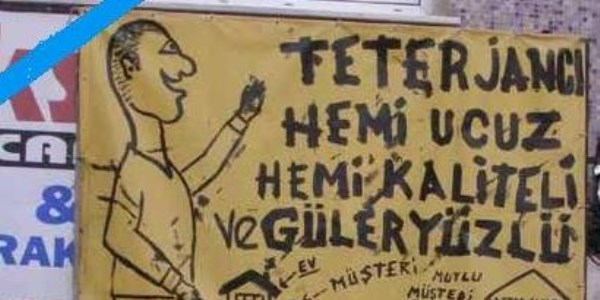 TETERJANCI
HEMİ UCUZ
HEMİ KALİTELİ
VE GÜLERYÜZLÜ
EV
MÜŞTERİ
MUTLU
MÜSTERİ
CAR
&
RAK